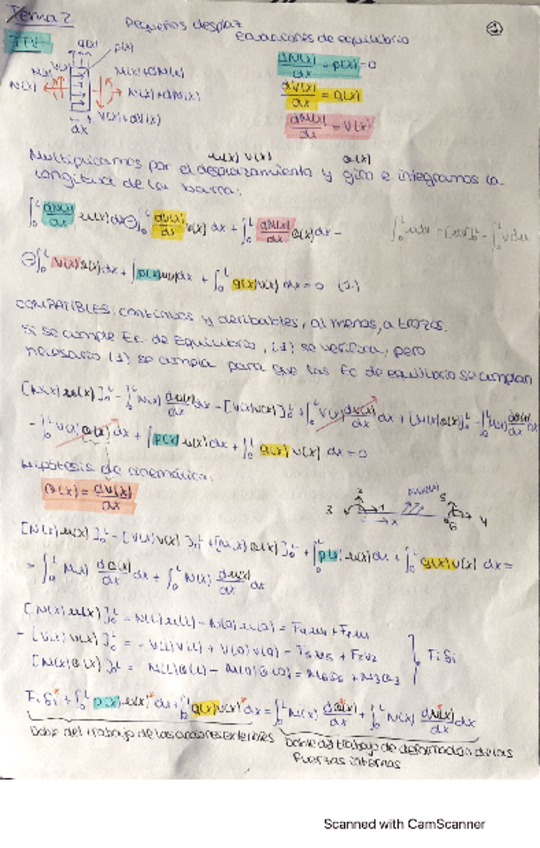 Tema 2
Pequeños desplaz
Ecuaciones de equilibrio
PTV
q(x)
p(x)
V(x)
N(x)
M(x)+dM(x)
N(x)+dN(x)
V(x)+dV(x)
dx
dN(x)/dx + p(x) = 0
dV(x)/dx = q(x)
dM(x)/dx = V(x)
u(x) v(x) θ(x)
Multiplicamos por el desplazamiento y giro e integramos la
longitud de la barra:
∫₀ᴸ dN(x)/dx u(x) dx ⊖ ∫₀ᴸ dV(x)/dx v(x) dx + ∫₀ᴸ dM(x)/dx θ(x) dx −
⊖ ∫₀ᴸ V(x) θ(x) dx + ∫ p(x) u(x) dx + ∫₀ᴸ q(x) v(x) dx = 0 (1)
COMPATIBLES: continuos y derivables, al menos, a trozos.
Si se cumple Ec de Equilibrio, (1) se verifica, pero
necesario (1) se cumpla para que las Ec de equilibrio se cumplan
[N(x) u(x)]₀ᴸ − ∫₀ᴸ N(x) du(x)/dx dx − [V(x) v(x)]₀ᴸ + ∫₀ᴸ V(x) dv(x)/dx dx + [M(x) θ(x)]₀ᴸ − ∫₀ᴸ M(x) dθ(x)/dx dx
− ∫₀ᴸ V(x) θ(x) dx + ∫ p(x) u(x) dx + ∫₀ᴸ q(x) v(x) dx = 0
Hipótesis de cinemática:
θ(x) = dv(x)/dx
[N(x) u(x)]₀ᴸ − [V(x) v(x)]₀ᴸ + [M(x) θ(x)]₀ᴸ + ∫₀ᴸ p(x) u(x) dx + ∫₀ᴸ q(x) v(x) dx =
= ∫₀ᴸ M(x) dθ(x)/dx dx + ∫₀ᴸ N(x) du(x)/dx dx
[N(x) u(x)]₀ᴸ = N(L) u(L) − N(0) u(0) = F₄u₄ + F₁u₁
− [V(x) v(x)]₀ᴸ = − V(L) v(L) + V(0) v(0) = F₅u₅ + F₂v₂
Fi δi
Fi δi* + ∫₀ᴸ p(x) u(x)* dx + ∫₀ᴸ q(x) v(x)* dx = ∫₀ᴸ M(x) dθ(x)*/dx + ∫₀ᴸ N(x) du(x)*/dx dx
Doble del trabajo de las acciones exteriores
Doble del trabajo de deformación de las
fuerzas internas
Scanned with CamScanner